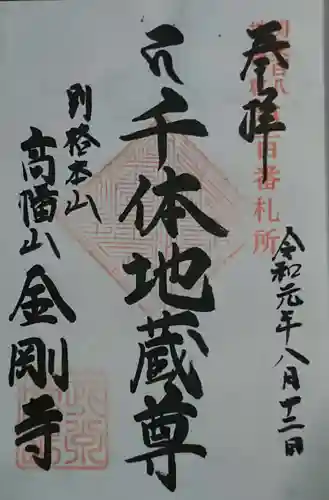 奉拝
百番札所
令和元年八月十二日
千体地蔵尊
別格本山
高幡山金剛寺